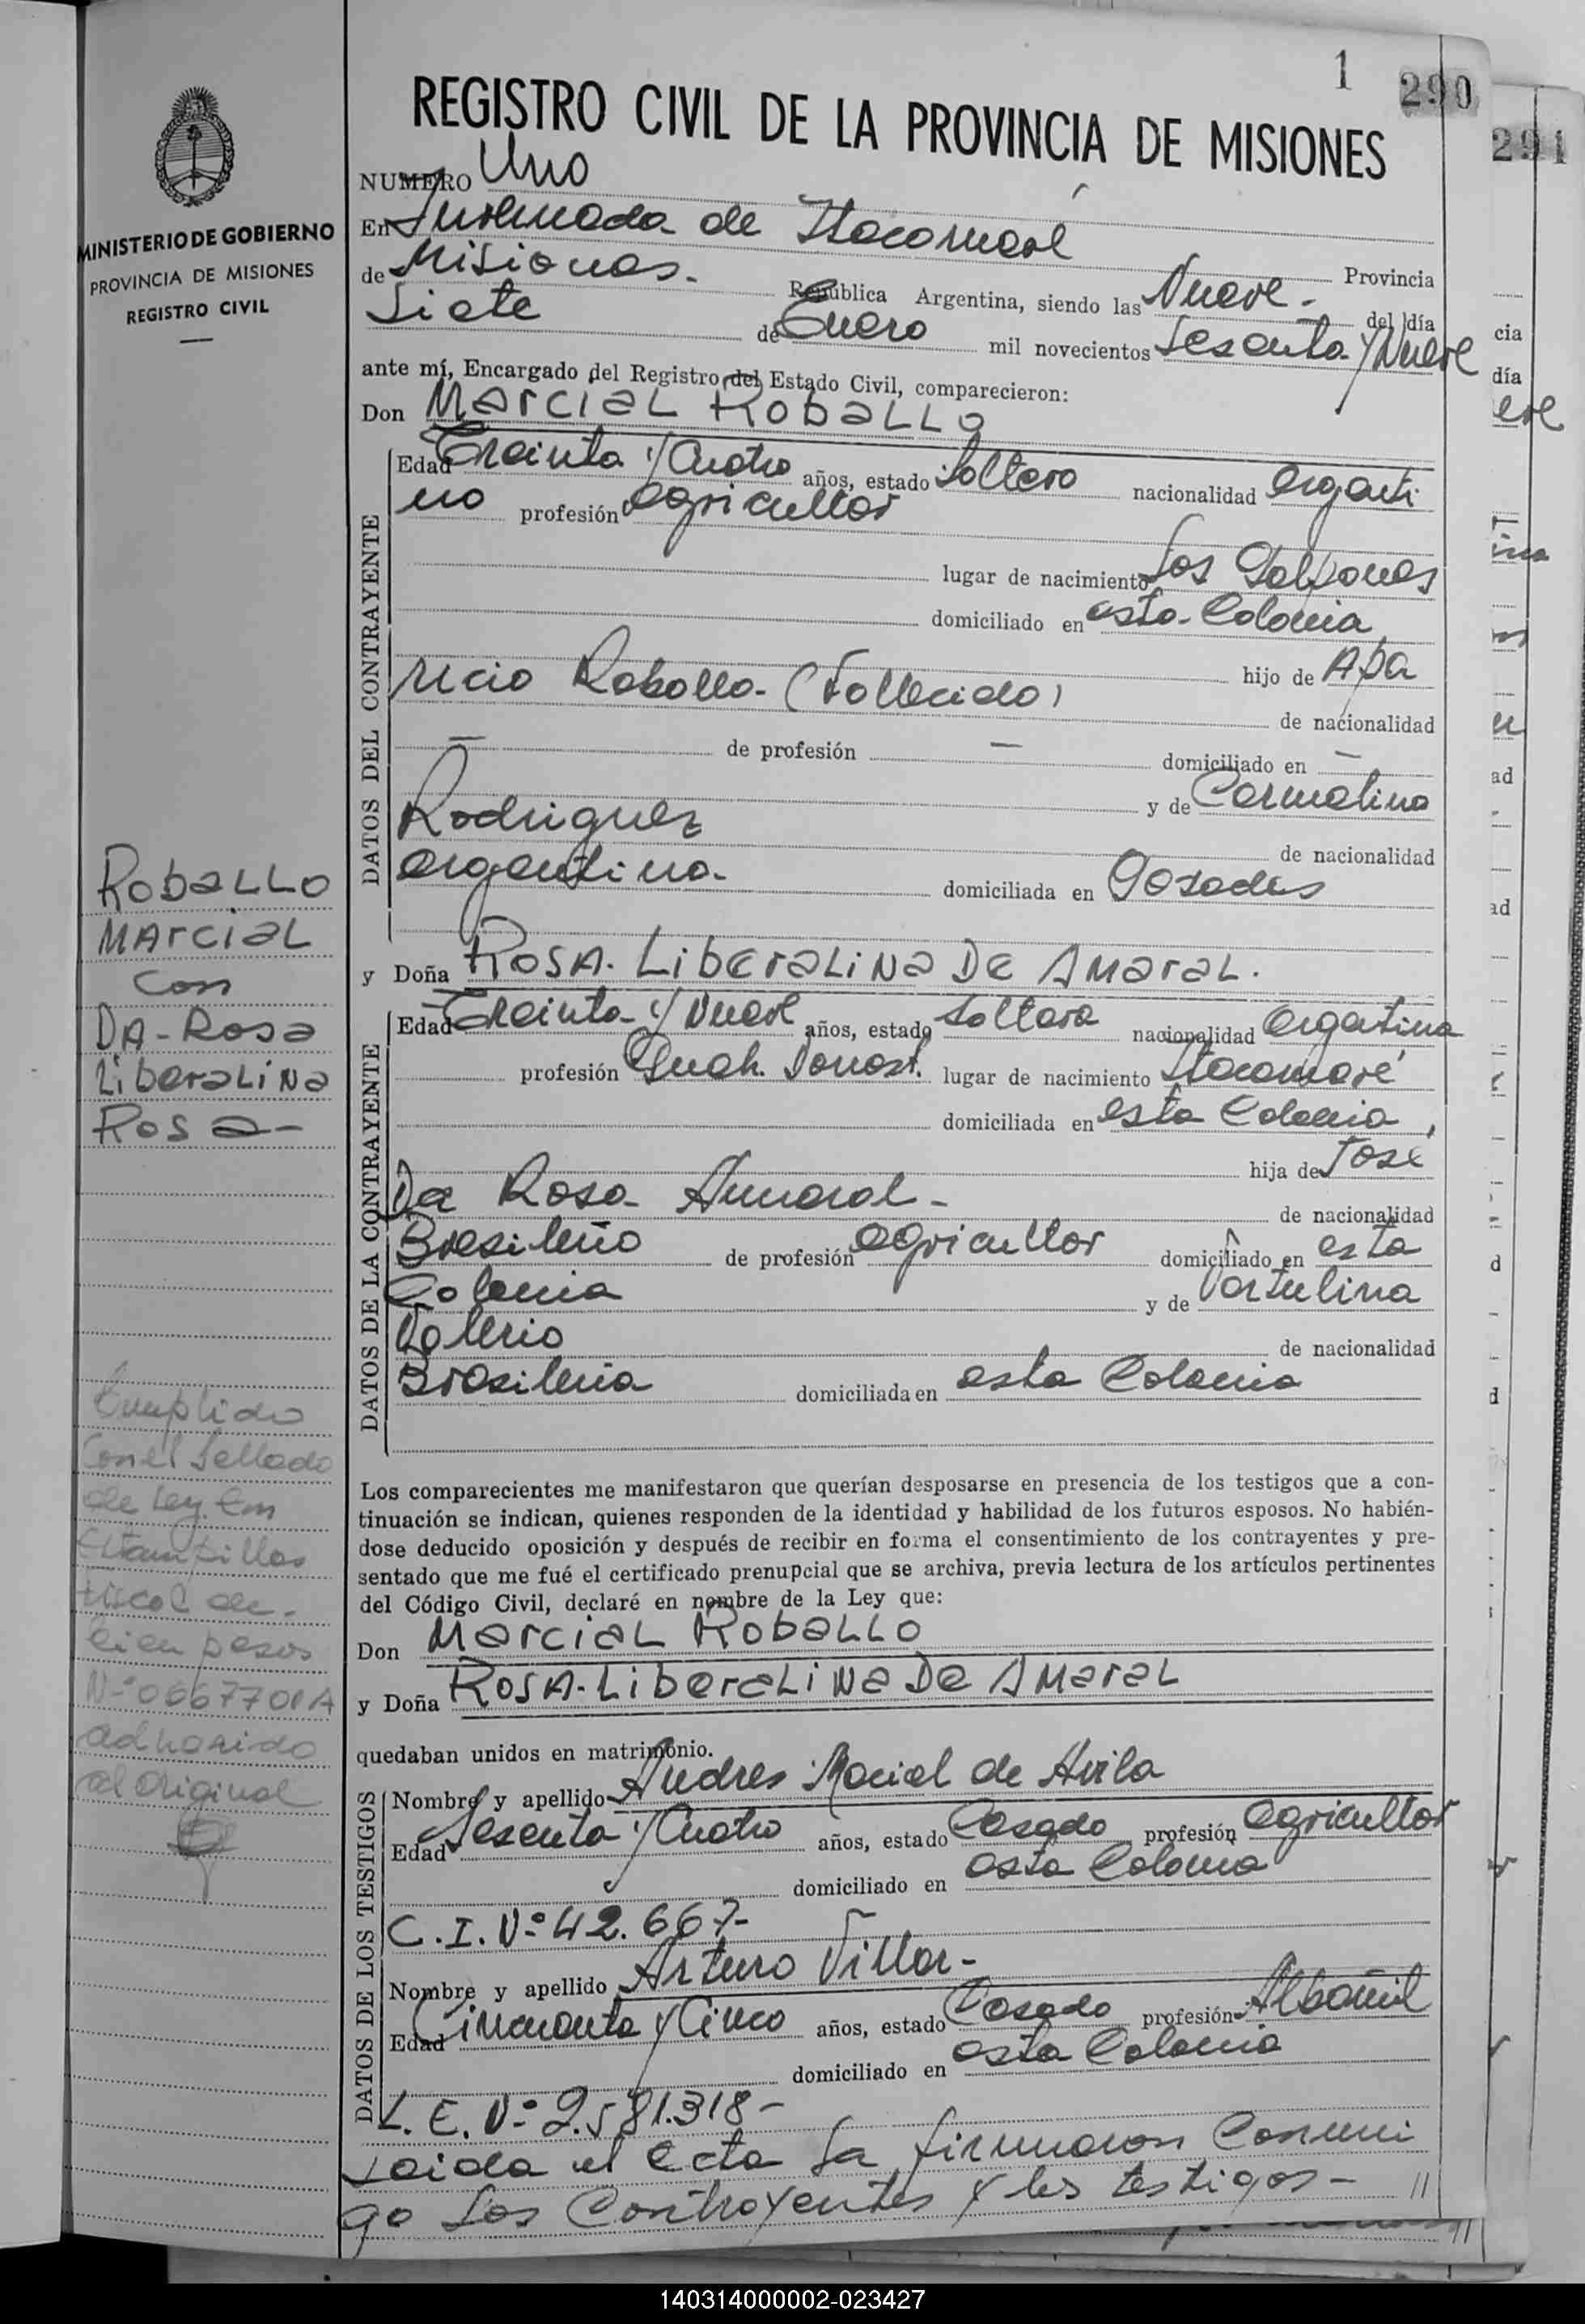 1
290
291
REGISTRO CIVIL DE LA PROVINCIA DE MISIONES
MINISTERIO DE GOBIERNO
PROVINCIA DE MISIONES
REGISTRO CIVIL
NUMERO Uno
En de Itacoruaré Provincia
de Misiones.- República Argentina, siendo las Nueve - del día
Siete de Enero mil novecientos Sesenta y Nueve
ante mí, Encargado del Registro del Estado Civil, comparecieron:
Don Marcial Roballo
DATOS DEL CONTRAYENTE
Edad Treinta y Cuatro años, estado Soltero nacionalidad argenti
no profesión agricultor
lugar de nacimiento Los Galpones
domiciliado en esta-Colonia
hijo de Apa
ricio Roballo- (Fallecido)
de nacionalidad
— de profesión — domiciliado en —
y de Carmelina
Rodriguez
de nacionalidad
argentina- domiciliada en Posadas
y Doña Rosa. Liberalina De Amaral.
DATOS DE LA CONTRAYENTE
Edad Treinta y Nueve años, estado Soltera nacionalidad argentina
profesión Queh. Domest. lugar de nacimiento Itacaruaré
domiciliada en esta Colonia,
hija de José
Da Rosa Amaral -
de nacionalidad
Brasileño de profesión agricultor domiciliado en esta
Colonia y de
Valerio
de nacionalidad
Brasileña domiciliada en esta Colonia
Roballo
Marcial
con
Da-Rosa
Liberalina
Rosa-
Cumplido
con el Sellado
de Ley. En
Estampillas
fiscal de-
cien pesos
Nº 0667701A
adherido
al Original
Los comparecientes me manifestaron que querían desposarse en presencia de los testigos que a con-
tinuación se indican, quienes responden de la identidad y habilidad de los futuros esposos. No habién-
dose deducido oposición y después de recibir en forma el consentimiento de los contrayentes y pre-
sentado que me fué el certificado prenupcial que se archiva, previa lectura de los artículos pertinentes
del Código Civil, declaré en nombre de la Ley que:
Don Marcial Roballo
y Doña Rosa-Liberalina De Amaral
quedaban unidos en matrimonio.
DATOS DE LOS TESTIGOS
Nombre y apellido Andres Maciel de Avila
Edad Sesenta y Cuatro años, estado Casado profesión agricultor
domiciliado en esta Colonia
C.I. Nº 42.667-
Nombre y apellido Arturo Villar-
Edad Cincuenta y Cinco años, estado Casado profesión Albañil
domiciliado en esta Colonia
L.E. Nº 2.581.318-
Leida el acta la firmaron Conmi
go Los Contrayentes y los testigos- //
140314000002-023427